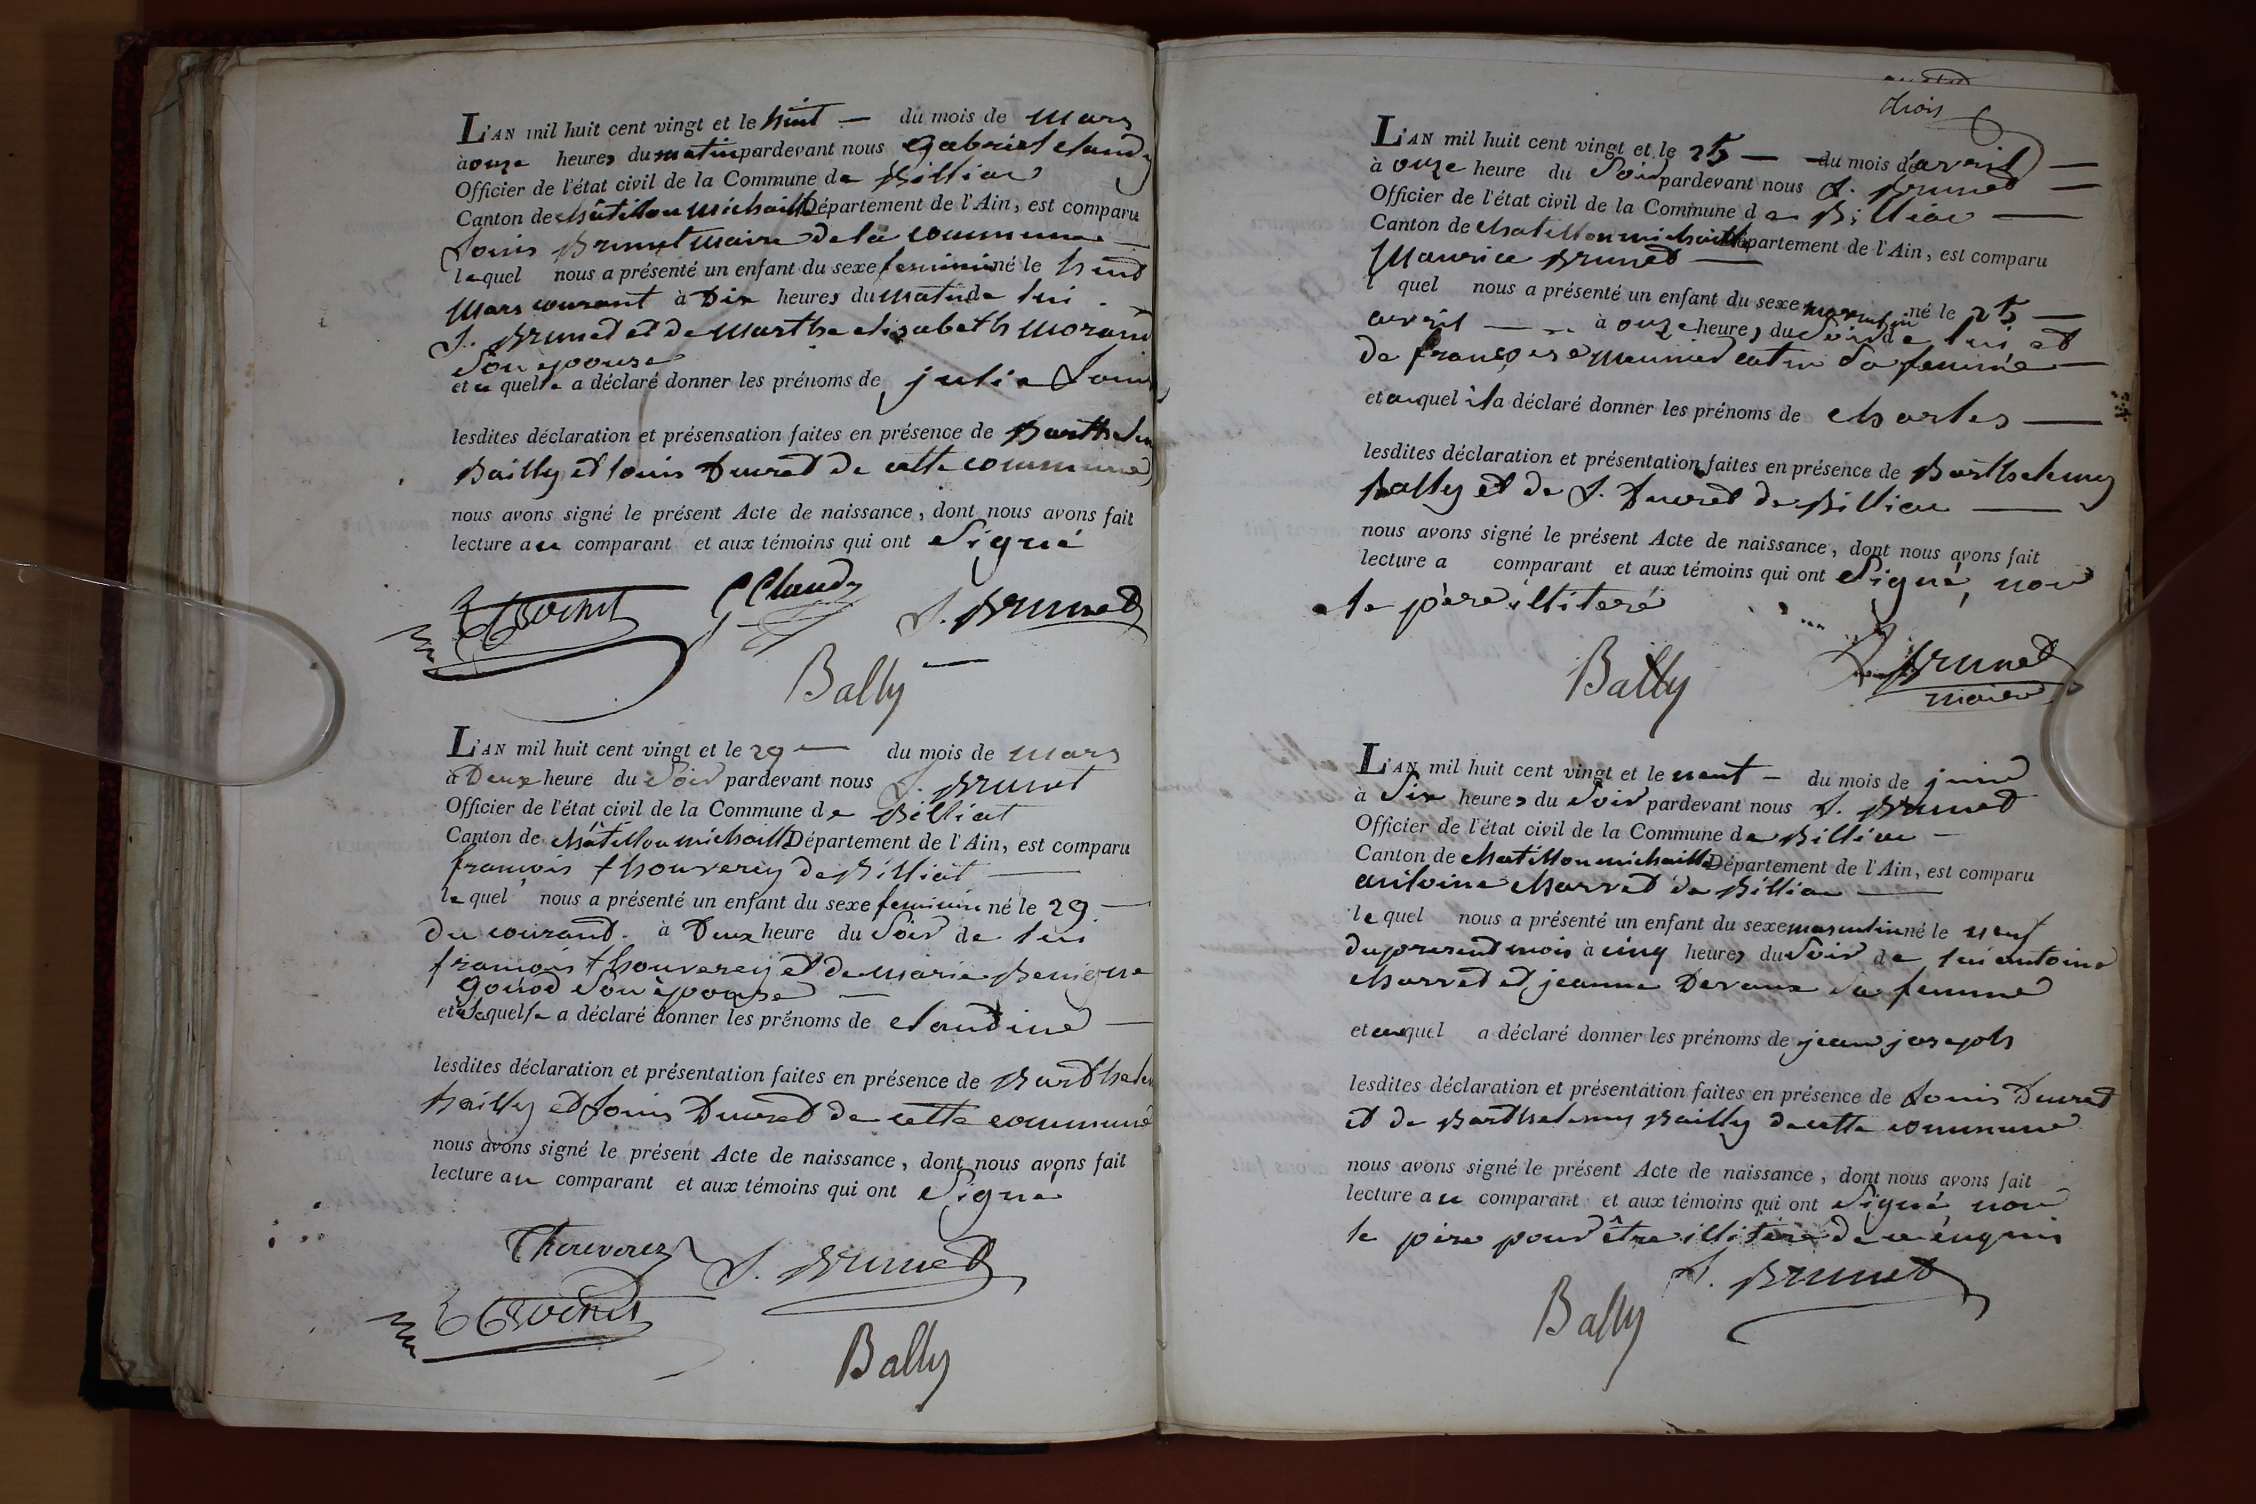 L'AN mil huit cent vingt et le huit — du mois de mars
à onze heures du matin pardevant nous gabriel claudy
Officier de l'état civil de la Commune de Billiac
Canton de châtillon michaille Département de l'Ain, est comparu
Louis Brunet maire de la commune —
lequel nous a présenté un enfant du sexe feminin né le huit
mars courant à Dix heures du matin de lui
L. Brunet et de marthe elisabeth morand
Son epouse
et a quelle a déclaré donner les prénoms de julie Louis
lesdites déclaration et présensation faites en présence de Barthelem
Bailly et louis Ducret de cette commune
nous avons signé le présent Acte de naissance, dont nous avons fait
lecture au comparant et aux témoins qui ont Signé
G Claudy L. Brunet
Bally
L'AN mil huit cent vingt et le 29 — du mois de mars
à Deux heure du Soir pardevant nous L. Brunet
Officier de l'état civil de la Commune de Billiat
Canton de châtillon michaille Département de l'Ain, est comparu
francois thouverey de Billiat —
lequel nous a présenté un enfant du sexe feminin né le 29. —
du courant. à Deux heure du Soir de lui
francois thouverey et de marie Benigne
gonod Son èpouse —
et a laquelle a déclaré donner les prénoms de claudine —
lesdites déclaration et présentation faites en présence de Barthelem
bailly et Louis Ducret de cette commune
nous avons signé le présent Acte de naissance, dont nous avons fait
lecture au comparant et aux témoins qui ont Signé
Thouverez L. Brunet
Bally
trois
L'AN mil huit cent vingt et le 25 — du mois d'avril —
à onze heure du Soir pardevant nous L. Brunet —
Officier de l'état civil de la Commune de Billiac —
Canton de chatillon michaille Département de l'Ain, est comparu
Maurice Brunet —
l quel nous a présenté un enfant du sexe masculin né le 25 —
avril — à onze heures du Soir de lui et
de françoise meunier catin Sa femme —
et auquel il a déclaré donner les prénoms de charles —
lesdites déclaration et présentation faites en présence de Barthelemy
Bally et de L. Ducret de Billiac —
nous avons signé le présent Acte de naissance, dont nous avons fait
lecture a comparant et aux témoins qui ont Signé, non
le père illiteré
Bally Brunet
maire
L'AN mil huit cent vingt et le neuf — du mois de juin
à Six heures du Soir pardevant nous L. Brunet
Officier de l'état civil de la Commune de Billiac —
Canton de chatillon michaille Département de l'Ain, est comparu
antoine charvet de Billiac —
lequel nous a présenté un enfant du sexe masculin né le neuf
du present mois à cinq heures du Soir de lui antoine
charvet et jeanne Devaux Sa femme
et auquel a déclaré donner les prénoms de jean joseph
lesdites déclaration et présentation faites en présence de Louis Ducret
et de Barthelemy Bailly de cette commune
nous avons signé le présent Acte de naissance, dont nous avons fait
lecture au comparant et aux témoins qui ont Signé non
le père pour être illiteré de ce énquis
L. Brunet
Bally